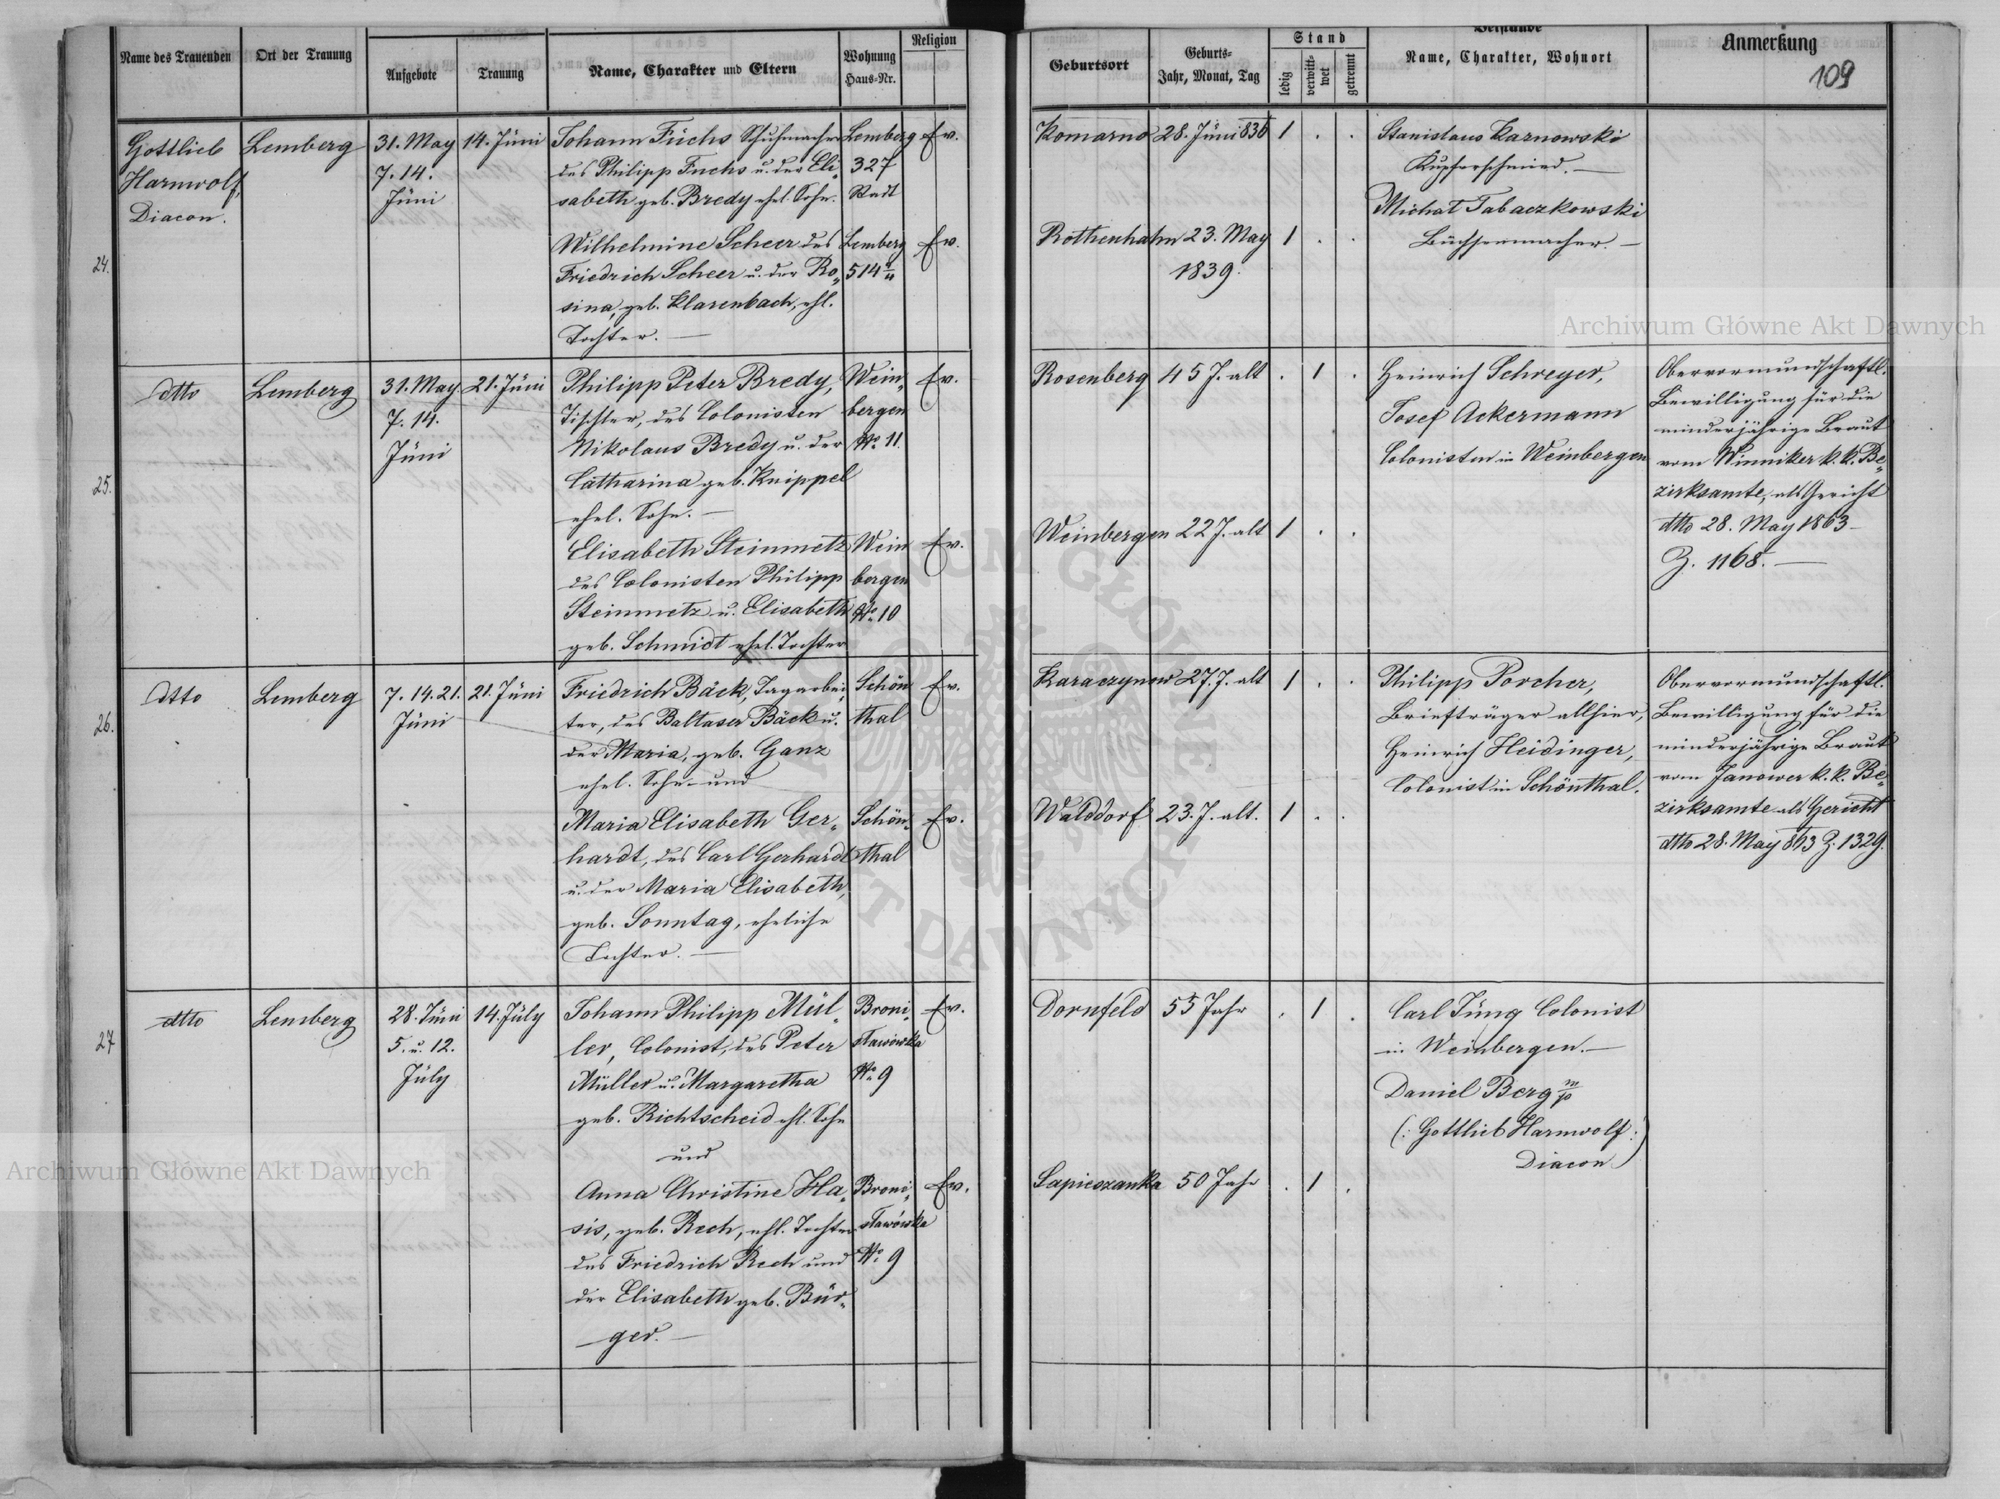 Name des Trauenden
Ort der Trauung
Aufgebote
Trauung
Name, Charakter und Eltern
Wohnung
Haus-Nr.
Religion
Geburtsort
Geburts-
Jahr, Monat, Tag
Stand
ledig
verwitt-
wet
getrennt
Beistände
Name, Charakter, Wohnort
Anmerkung
109
24.
Gottlieb
Harmwolf,
Diacon.
Lemberg
31. May
7. 14.
Júni
14. Júni
Johann Fuchs Schuhmacher
des Philipp Fuchs u. der Eli-
sabeth geb. Bredy ehel. Sohn.
Lemberg
327
Stadt
Ev.
Komarno
28. Júni 836
1 . .
Stanislaus Karnowski
Kupferschmied. —
Michał Tabaczkowski
Büchsenmacher. —
Wilhelmine Scheer des
Friedrich Scheer u. der Ro-
sina, geb. Klarenbach, ehl.
Tochter. —
Lemberg
514
Ev.
Rothenhahn
23. May
1839.
1 . .
25.
dtto
Lemberg
31. May
7. 14.
Júni
21. Júni
Philipp Peter Bredy,
Tischler, des Colonisten
Nikolaus Bredy u. der
Catharina geb. Knippel
ehel. Sohn. —
Wein-
bergen
No. 11.
Ev.
Rosenberg
45 J. alt
. 1 .
Heinrich Schreyer,
Josef Ackermann
Colonisten in Weinbergen
Obervormundschaftl.
Bewilligung für die
minderjährige Braut
vom Winniker k. k. Be-
zirksamte, als Gericht
dtto 28. May 1863
Z. 1168. —
Elisabeth Steinmetz
des Colonisten Philipp
Steinmetz u. Elisabeth
geb. Schmidt ehel. Tochter
Wein
bergen
No. 10
Ev.
Weinbergen
22 J. alt
1 . .
26.
dtto
Lemberg
7. 14. 21.
Júni
21. Júni
Friedrich Bäck, Tagarbei-
ter, des Baltaser Bäck u.
der Maria, geb. Ganz
ehel. Sohn und
Schön
thal
Ev.
Karaczynow
27. J. alt
1 . .
Philipp Porcher,
Briefträger allhier,
Heinrich Heidinger,
Colonist in Schönthal.
Obervormundschaftl.
Bewilligung für die
minderjährige Braut
vom Janower k. k. Be-
zirksamte als Gericht
dtto 28. May 863 Z. 1329.
Maria Elisabeth Ger-
hardt, des Carl Gerhardt
u. der Maria Elisabeth,
geb. Sonntag, eheliche
Tochter. —
Schön-
thal
Ev.
Walddorf
23. J. alt.
1 . .
27
dtto
Lemberg
28. Júni
5. u. 12.
Júly
14. Júly
Johann Philipp Mül-
ler, Colonist, des Peter
Müller u. Margaretha
geb. Richtscheid ehl. Sohn
und
Broni-
sławówka
No. 9
Ev.
Dornfeld
55 Jahr
. 1 .
Carl Jüng Colonist
in Weinbergen. —
Daniel Berg m/p
(: Gottlieb Harmwolf :)
Diacon
Anna Christine Ha-
sis, geb. Rech, ehl. Tochter
des Friedrich Rech und
der Elisabeth geb. Bür-
ger. —
Broni-
sławówka
No. 9
Ev.
Sapieszanka
50 Jahr
. 1 .
Archiwum Główne Akt Dawnych
Archiwum Główne Akt Dawnych